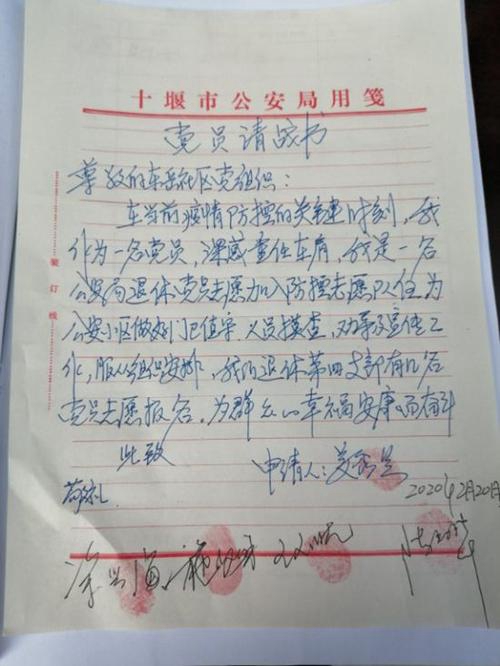 十堰市公安局用笺
党员请战书
尊敬的车岳社区党组织:
在当前疫情防控的关键时刻,我
作为一名党员,深感责任在肩,我是一名
公安局退休党员志愿加入防控志愿队伍为
公安小区做好门卫值守,人员摸查,劝导及宣传工
作,服从组织安排,我们退休第四支部有几名
党员志愿报名,为群众的幸福安康而奋斗
此致
敬礼
申请人:姜
2020年2月20日
装订线